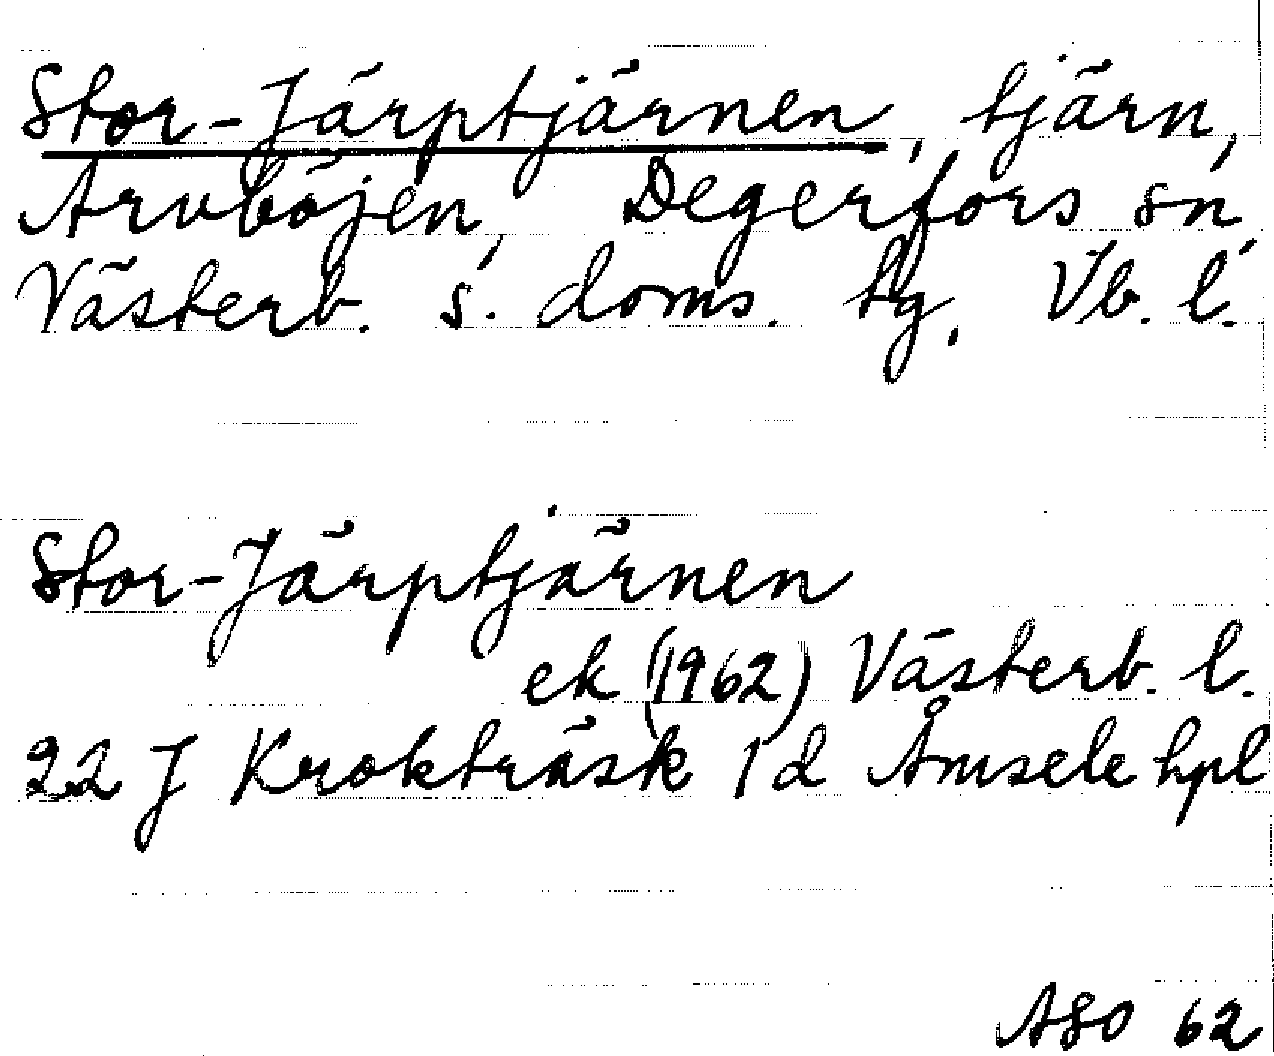 Stor-Järptjärnen, tjärn,
Arvböjen, Degerfors sn,
Västerb. s. doms. tg. Vb. l.
Stor-Järptjärnen
ek (1962) Västerb. l.
22 J Krokträsk 1 d Åmsele hpl
ASO 62